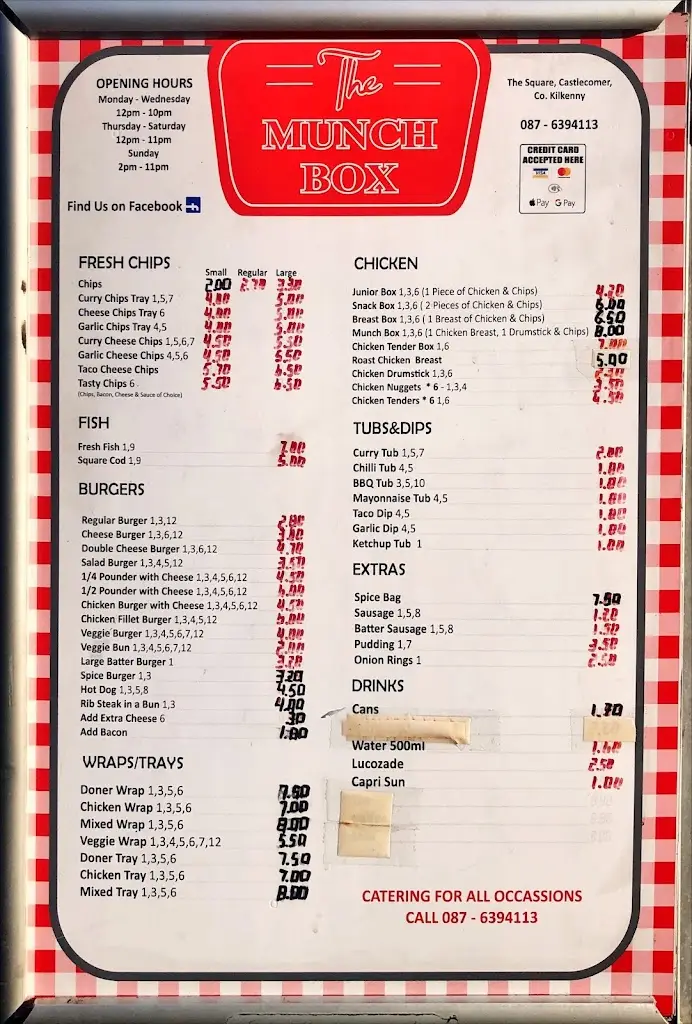 OPENING HOURS
Monday - Wednesday
12pm - 10pm
Thursday - Saturday
12pm - 11pm
Sunday
2pm - 11pm
Find Us on Facebook
The
MUNCH
BOX
The Square, Castlecomer,
Co. Kilkenny
087 - 6394113
CREDIT CARD
ACCEPTED HERE
VISA
Pay G Pay
FRESH CHIPS
Small Regular Large
Chips 2.00 2.70
Curry Chips Tray 1,5,7 5.00
Cheese Chips Tray 6 5.00
Garlic Chips Tray 4,5 5.00
Curry Cheese Chips 1,5,6,7 4.50 5.50
Garlic Cheese Chips 4,5,6 4.50 5.50
Taco Cheese Chips 5.70 6.50
Tasty Chips 6 5.50 6.50
(Chips, Bacon, Cheese & Sauce of Choice)
FISH
Fresh Fish 1,9 7.00
Square Cod 1,9 5.00
BURGERS
Regular Burger 1,3,12
Cheese Burger 1,3,6,12
Double Cheese Burger 1,3,6,12 4.70
Salad Burger 1,3,4,5,12
1/4 Pounder with Cheese 1,3,4,5,6,12 4.50
1/2 Pounder with Cheese 1,3,4,5,6,12
Chicken Burger with Cheese 1,3,4,5,6,12
Chicken Fillet Burger 1,3,4,5,12
Veggie Burger 1,3,4,5,6,7,12
Veggie Bun 1,3,4,5,6,7,12
Large Batter Burger 1 3.20
Spice Burger 1,3 3.20
Hot Dog 1,3,5,8 4.50
Rib Steak in a Bun 1,3 4.00
Add Extra Cheese 6
Add Bacon 1.00
WRAPS/TRAYS
Doner Wrap 1,3,5,6 7.50
Chicken Wrap 1,3,5,6 7.00
Mixed Wrap 1,3,5,6 8.00
Veggie Wrap 1,3,4,5,6,7,12 5.50
Doner Tray 1,3,5,6 7.50
Chicken Tray 1,3,5,6 7.00
Mixed Tray 1,3,5,6 8.00
CHICKEN
Junior Box 1,3,6 (1 Piece of Chicken & Chips) 4.20
Snack Box 1,3,6 ( 2 Pieces of Chicken & Chips) 6.00
Breast Box 1,3,6 ( 1 Breast of Chicken & Chips) 6.50
Munch Box 1,3,6 (1 Chicken Breast, 1 Drumstick & Chips) 8.00
Chicken Tender Box 1,6
Roast Chicken Breast 5.00
Chicken Drumstick 1,3,6
Chicken Nuggets * 6 - 1,3,4 3.50
Chicken Tenders * 6 1,6 4.50
TUBS&DIPS
Curry Tub 1,5,7 2.00
Chilli Tub 4,5 1.00
BBQ Tub 3,5,10 1.00
Mayonnaise Tub 4,5 1.00
Taco Dip 4,5 1.00
Garlic Dip 4,5 1.00
Ketchup Tub 1 1.00
EXTRAS
Spice Bag 7.50
Sausage 1,5,8 1.20
Batter Sausage 1,5,8 1.50
Pudding 1,7 3.50
Onion Rings 1 2.50
DRINKS
Cans 1.70
Water 500ml
Lucozade 2.50
Capri Sun 1.00
CATERING FOR ALL OCCASSIONS
CALL 087 - 6394113